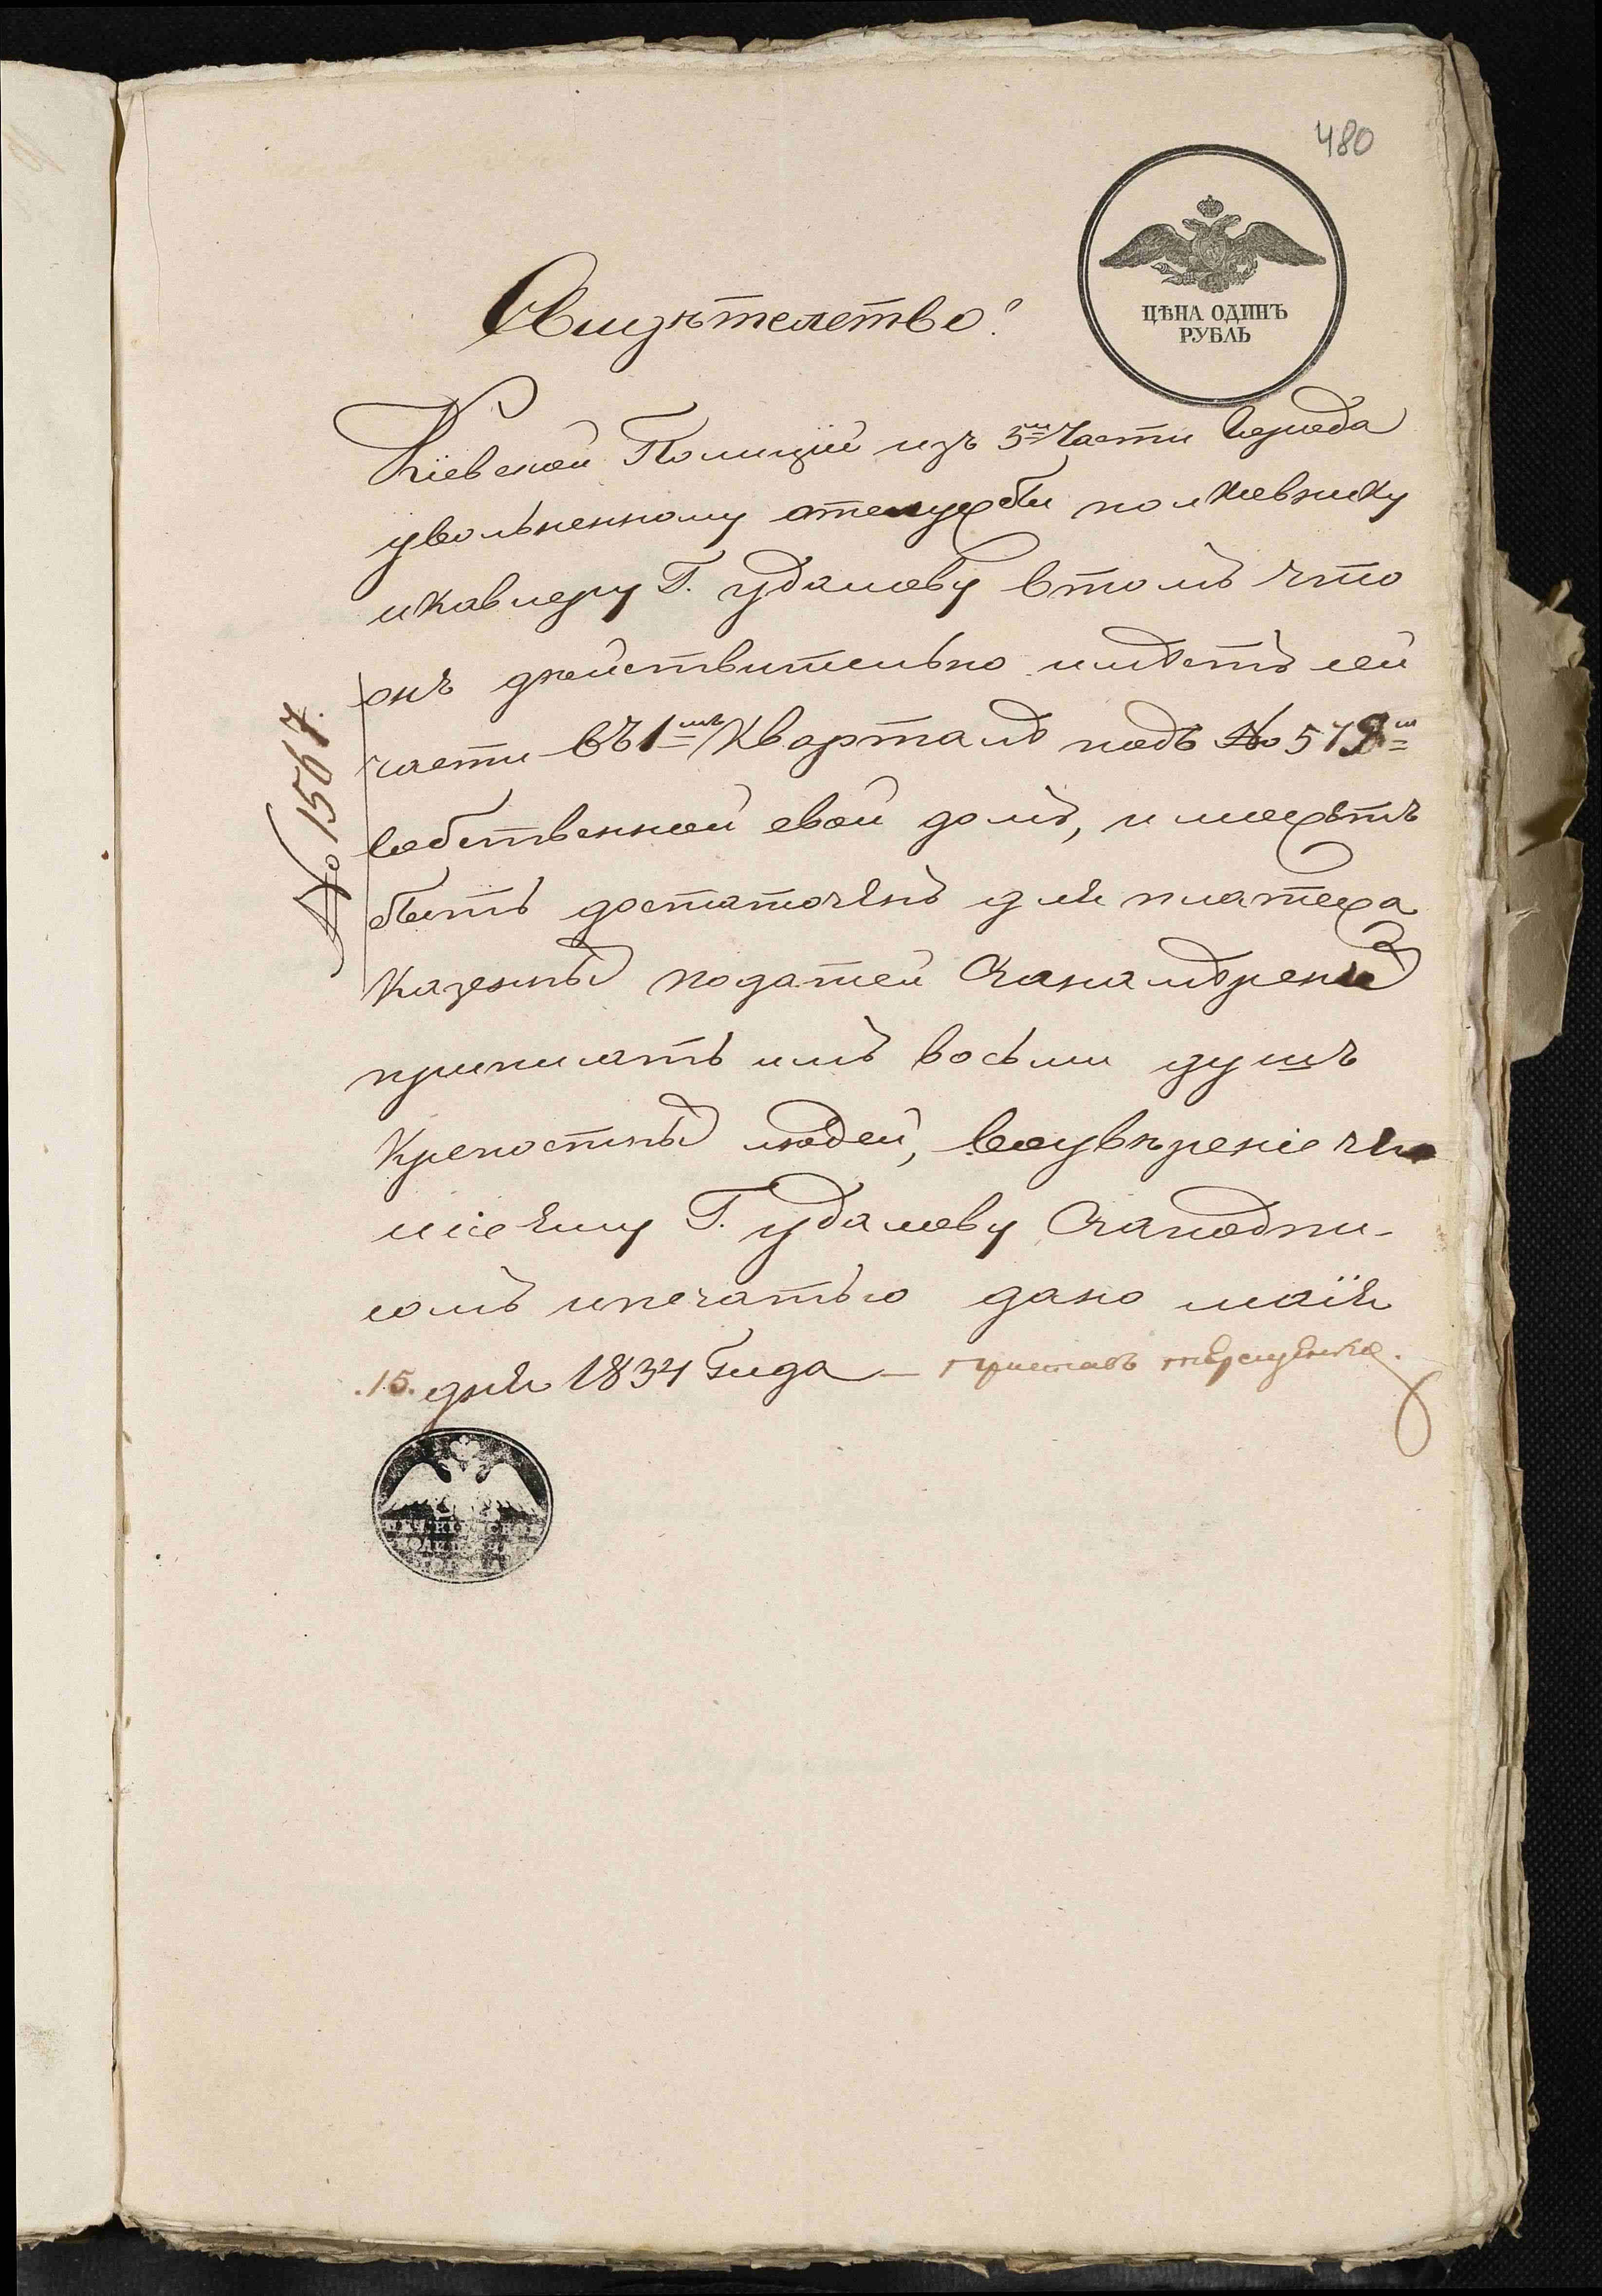 480
ЦѢНА ОДИНЪ
РУБЛЬ
Свидѣтелство.
Кіевской Полиціи изъ 5й Части Города
увольненному отслужби полковнику
икавлеру Г. Удамову втомъ что
онъ дѣйствительно имѣетъ сей
части въ 1мъ Кварталѣ подъ № 578м
собственной свой домъ, иможетъ
быть достаточенъ для платежа
Казенных податей
приписать имъ восьми душъ
Крепостных людей,
Г. Удамову
сомъ ипечатью дано маія
.15. дня 1834 Года — приставъ
№ 1567.